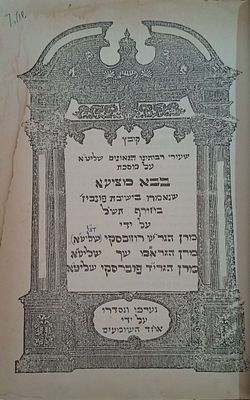 קובץ
שעורי רבותינו הגאונים שליט"א
על מסכת
בבא מציעא
שנאמרו בישיבת פונביז'
בחורף תש"ל
על ידי
מרן הגר"ש רוזובסקי (שליט"א)
מרן הגרא"מ שך שליט"א
מרן הגר"ד פוברסקי שליט"א
נערכו ונסדרו
על ידי
אחד השומעים